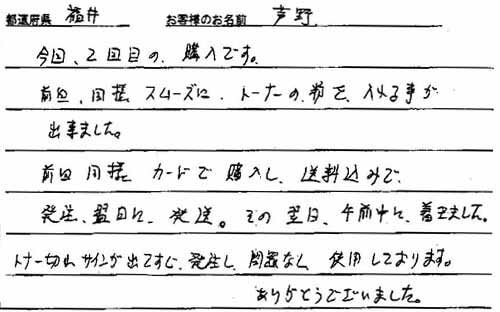 都道府県 福井 お客様のお名前 芦野
今回、2回目の、購入です。
前回、同様 スムーズに、トナーの粉を、入れる事が
出来ました。
前回同様 カードで購入し、送料込みで、
発注、翌日に、発送。その翌日、午前中に、着きました。
トナー切れサインが出てすぐ、発注し、問題なし 使用しております。
ありがとうございました。